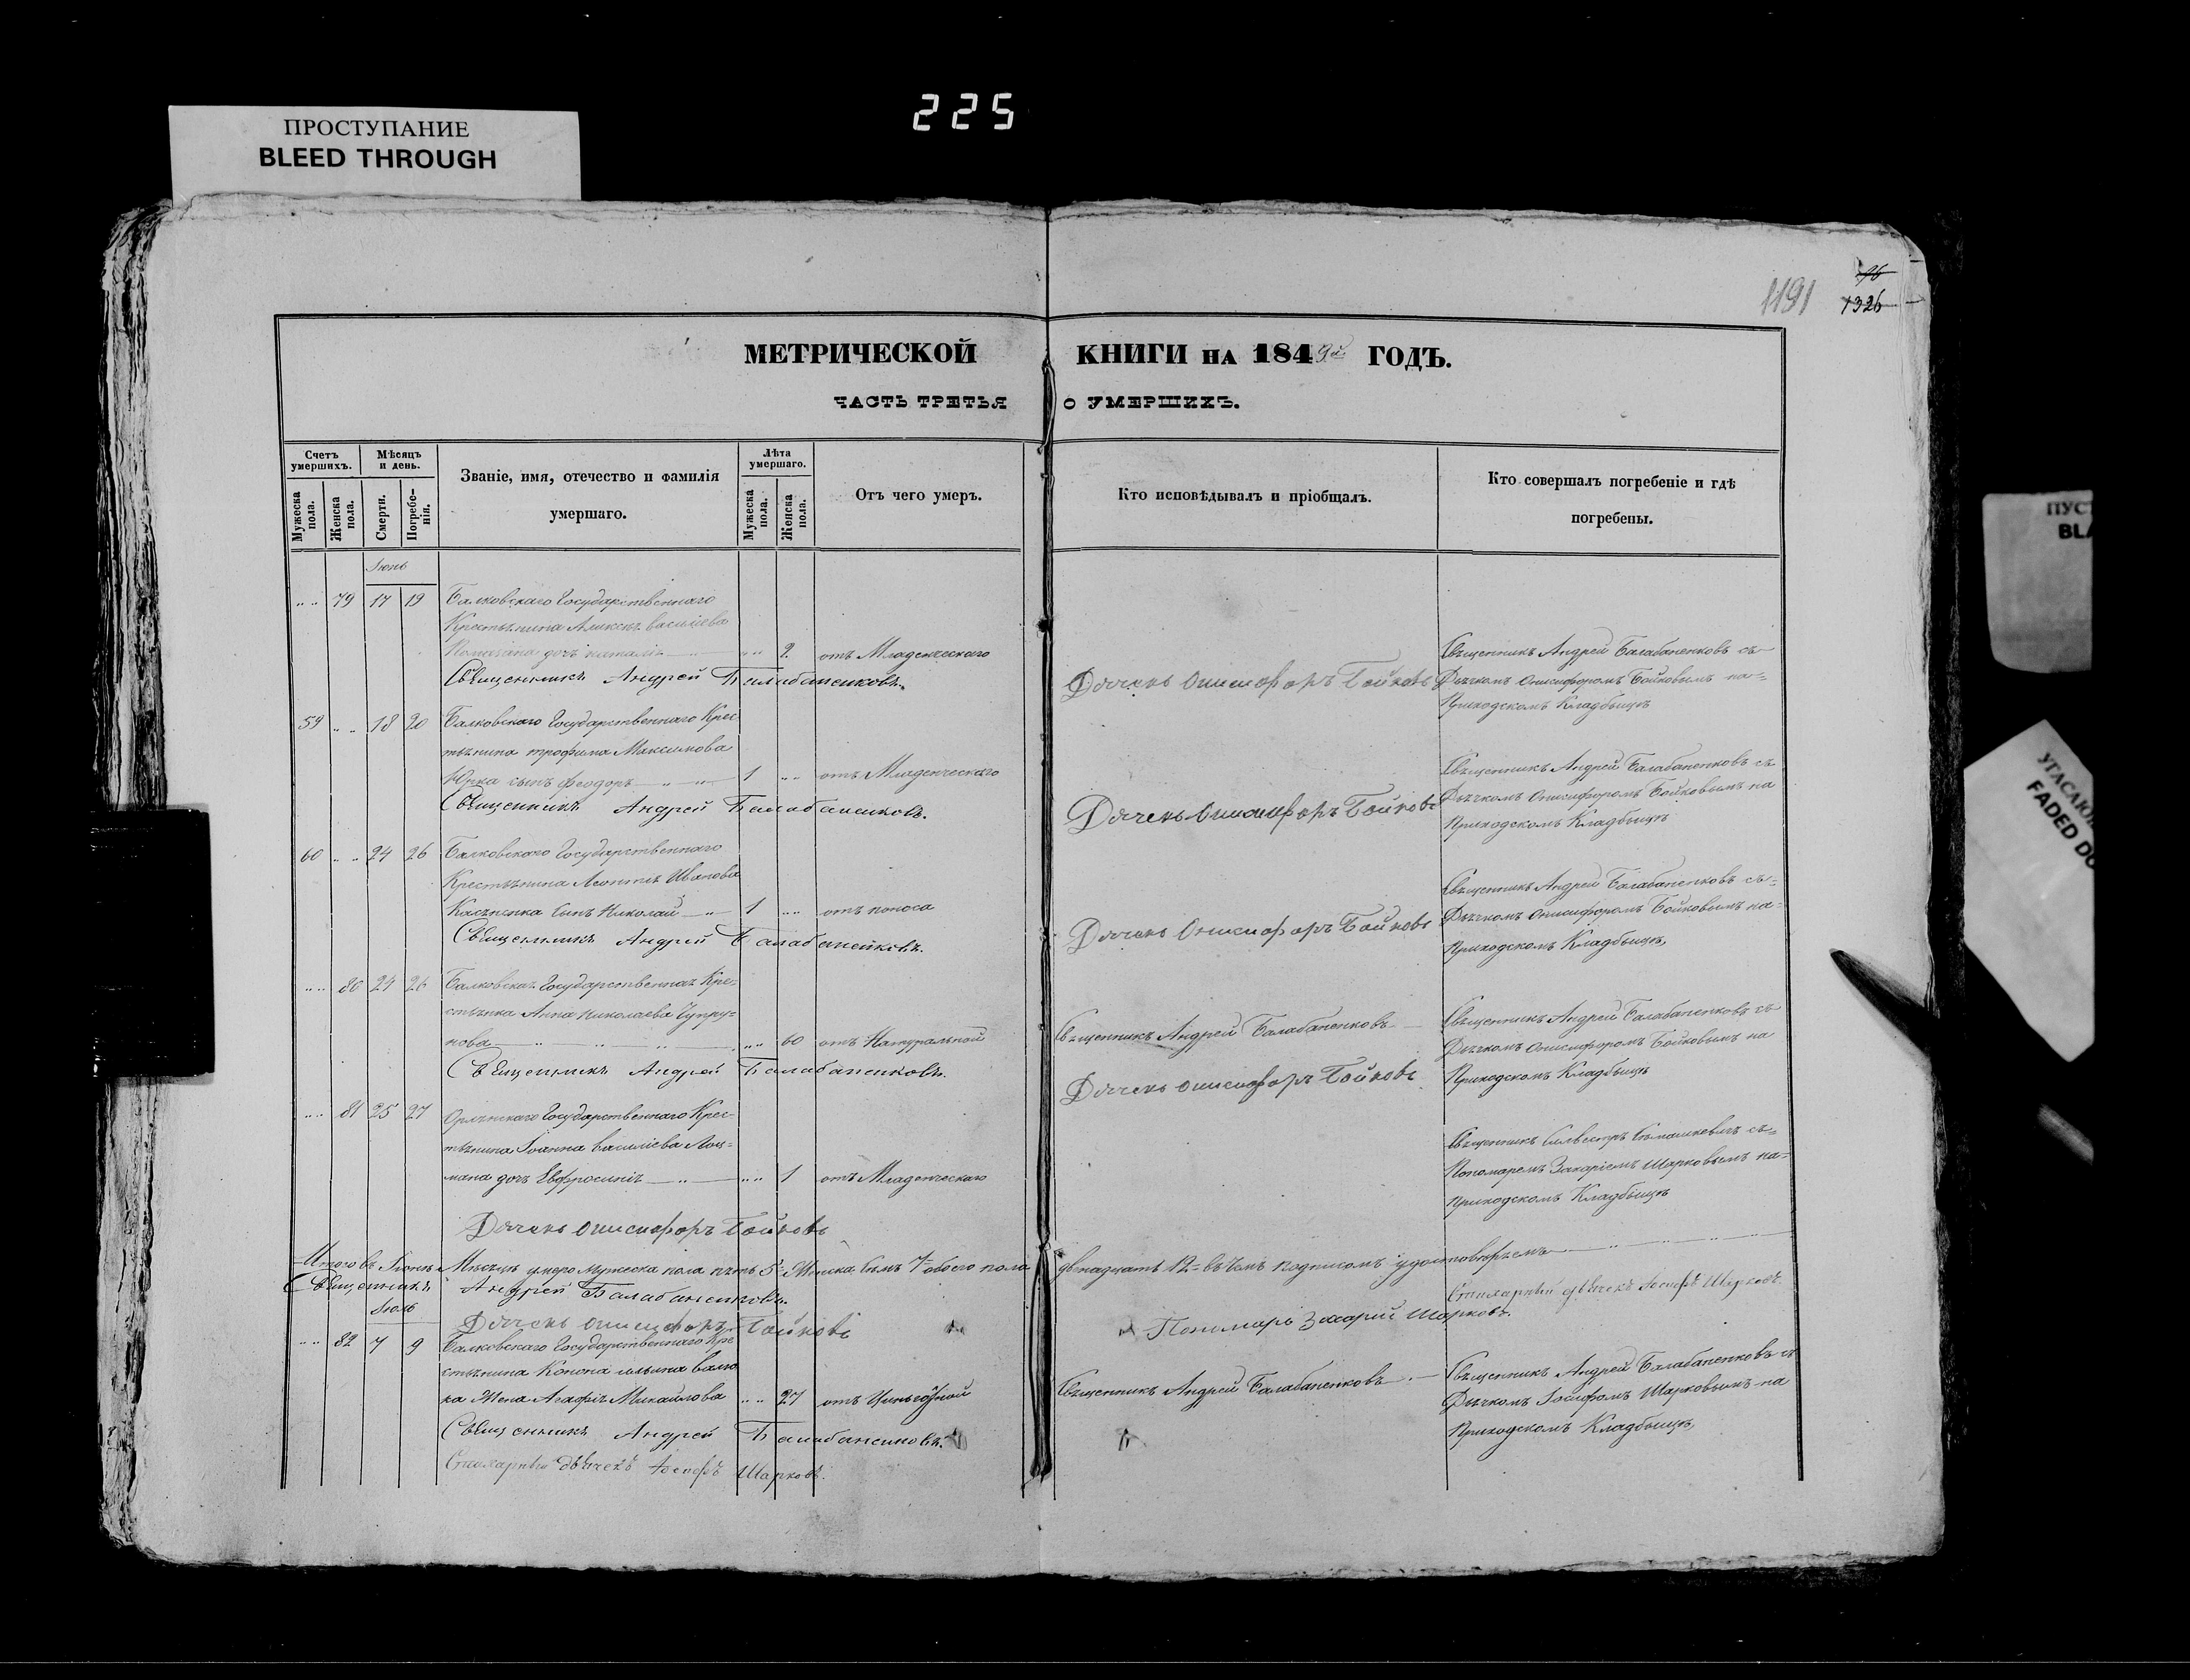 225
ПРОСТУПАНИЕ
BLEED THROUGH
1191
96
1326
МЕТРИЧЕСКОЙ КНИГИ НА 1849й ГОДЪ.
ЧАСТЬ ТРЕТЬЯ О УМЕРШИХЪ.
Счетъ умершихъ.
Мужеска пола.
Женска пола.
Мѣсяцъ и день.
Смерти.
Погребенія.
Званіе, имя, отечество и фамилія
умершаго.
Лѣта умершаго.
Мужеска пола.
Женска пола.
Отъ чего умеръ.
Кто исповѣдывалъ и пріобщалъ.
Кто совершалъ погребеніе и гдѣ
погребены.
Іюнь
79 17 19 Балковскаго Государственнаго
Крестьянина Алексѣя Васильева
дочь Наталія 2 отъ Младенческаго
Священникъ Андрей Балабаненковъ.
Дячекъ Онисифоръ Бойковъ
Священникъ Андрей Балабаненковъ съ
Дьячкомъ Онисифоромъ Бойковымъ на
Приходскомъ Кладбыщѣ
59 18 20 Балковскаго Государственнаго Крес
тьянина Трофима Максимова
Юрка сынъ Феодоръ 1 отъ Младенческаго
Священникъ Андрей Балабаненковъ.
Дячекъ Онисифоръ Бойковъ
Священникъ Андрей Балабаненковъ съ
Дьячкомъ Онисифоромъ Бойковымъ на
Приходскомъ Кладбыщѣ
60 24 26 Балковскаго Государственнаго
Крестьянина Леонтія Иванова
сынъ Николай 1 отъ поноса
Священникъ Андрей Балабаненковъ.
Дячекъ Онисифоръ Бойковъ
Священникъ Андрей Балабаненковъ съ
Дьячкомъ Онисифоромъ Бойковымъ на
Приходскомъ Кладбыщѣ
80 24 26 Балковская Государственная Кре
стьянка Анна Николаева Чупру
нова 60 отъ Натуральной
Священникъ Андрей Балабаненковъ.
Священникъ Андрей Балабаненковъ
Дячекъ Онисифоръ Бойковъ
Священникъ Андрей Балабаненковъ съ
Дьячкомъ Онисифоромъ Бойковымъ на
Приходскомъ Кладбыщѣ
81 25 27 Государственнаго Крес
тьянина Іоанна Васильева Лоц
мана дочь Евфросинія 1 отъ Младенческаго
Дячекъ Онисифоръ Бойковъ
Священникъ Сильвестръ съ
Пономаремъ Захаріемъ Шарковымъ на
Приходскомъ Кладбыщѣ
Итого въ Іюнѣ Мѣсяцѣ умерло мужеска пола пять 5 Женска семь 7 обоего пола двенадцать 12 въ чемъ подписомъ удостовѣряемъ
Священникъ Андрей Балабаненковъ.
Стихарный дьячекъ Іосифъ Шарковъ.
Дячекъ Онисифоръ Бойковъ
Пономарь Захарій Шарковъ.
Іюль
82 7 9 Балковскаго Государственнаго Кре
стьянина Конона Ильина Валю
ка Жена Агафія Михайлова 27 отъ Цинготной
Священникъ Андрей Балабаненковъ.
Стихарный дьячекъ Іосифъ Шарковъ.
Священникъ Андрей Балабаненковъ
Священникъ Андрей Балабаненковъ съ
Дьячкомъ Іосифомъ Шарковымъ на
Приходскомъ Кладбыщѣ
ПУСТ
BLA
УГАСАЮ
FADED DO